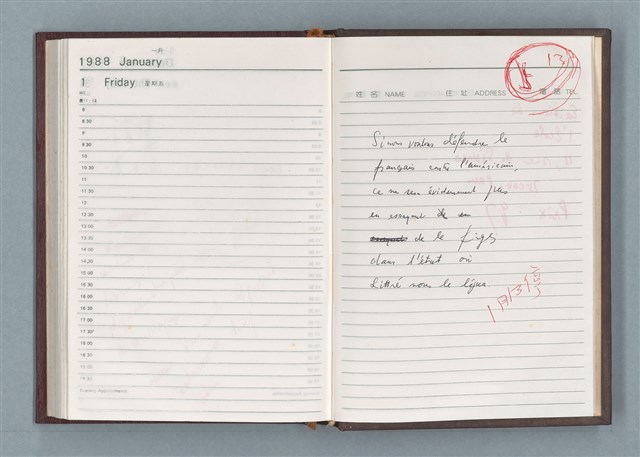 一月
1988 January
1 Friday 星期五
8
8.30
9
9.30
10
10.30
11
11.30
12
12.30
13.00
13.30
14.00
14.30
15.00
15.30
16.00
16.30
17.00
17.30
18.00
18.30
19.00
19.30
Evening Appointments
13
姓 名 NAME 住 址 ADDRESS 電 話 TEL.
Si nous voulons défendre le
français contre l'américain,
ce ne sera évidemment pas
en essayant de
de le figer
dans l'état où
Littré nous le légua.